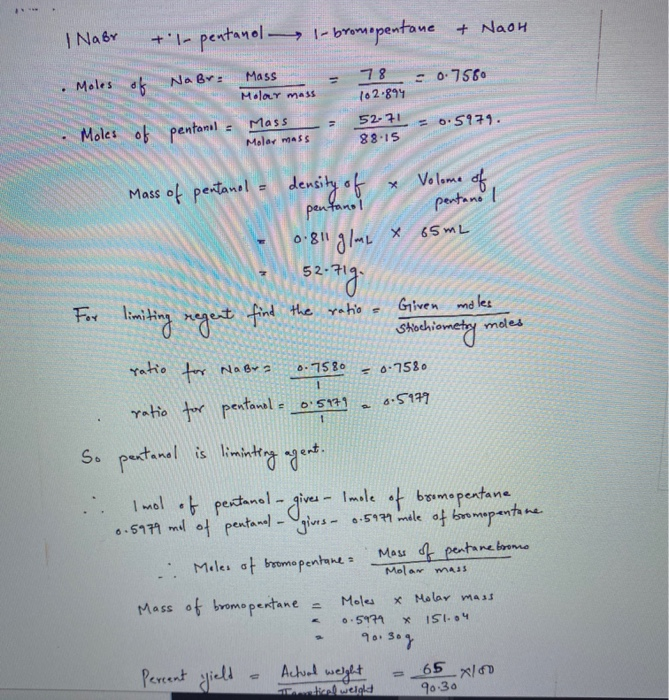 1 NaBr + 1- pentanol → 1-bromopentane + NaOH
. Moles of NaBr = Mass / Molar mass = 78 / 102.894 = 0.7580
. Moles of pentanol = Mass / Molar mass = 52.71 / 88.15 = 0.5979.
Mass of pentanol = density of pentanol × Volume of pentanol
= 0.811 g/mL × 65 mL
= 52.71g.
For limiting regent find the ratio = Given moles / Stiochiometry moles
ratio for NaBr = 0.7580 / 1 = 0.7580
ratio for pentanol = 0.5979 / 1 = 0.5979
So pentanol is liminting agent.
∴ 1 mol of pentanol - gives - 1 mole of bromopentane
0.5979 mol of pentanol - gives - 0.5979 mole of bromopentane
∴ Moles of bromopentane = Mass of pentanebromo / Molar mass
Mass of bromopentane = Moles × Molar mass
= 0.5979 × 151.04
= 90.30g
Percent yield = Actual weight / Theoretical weight = 65 / 90.30 × 100